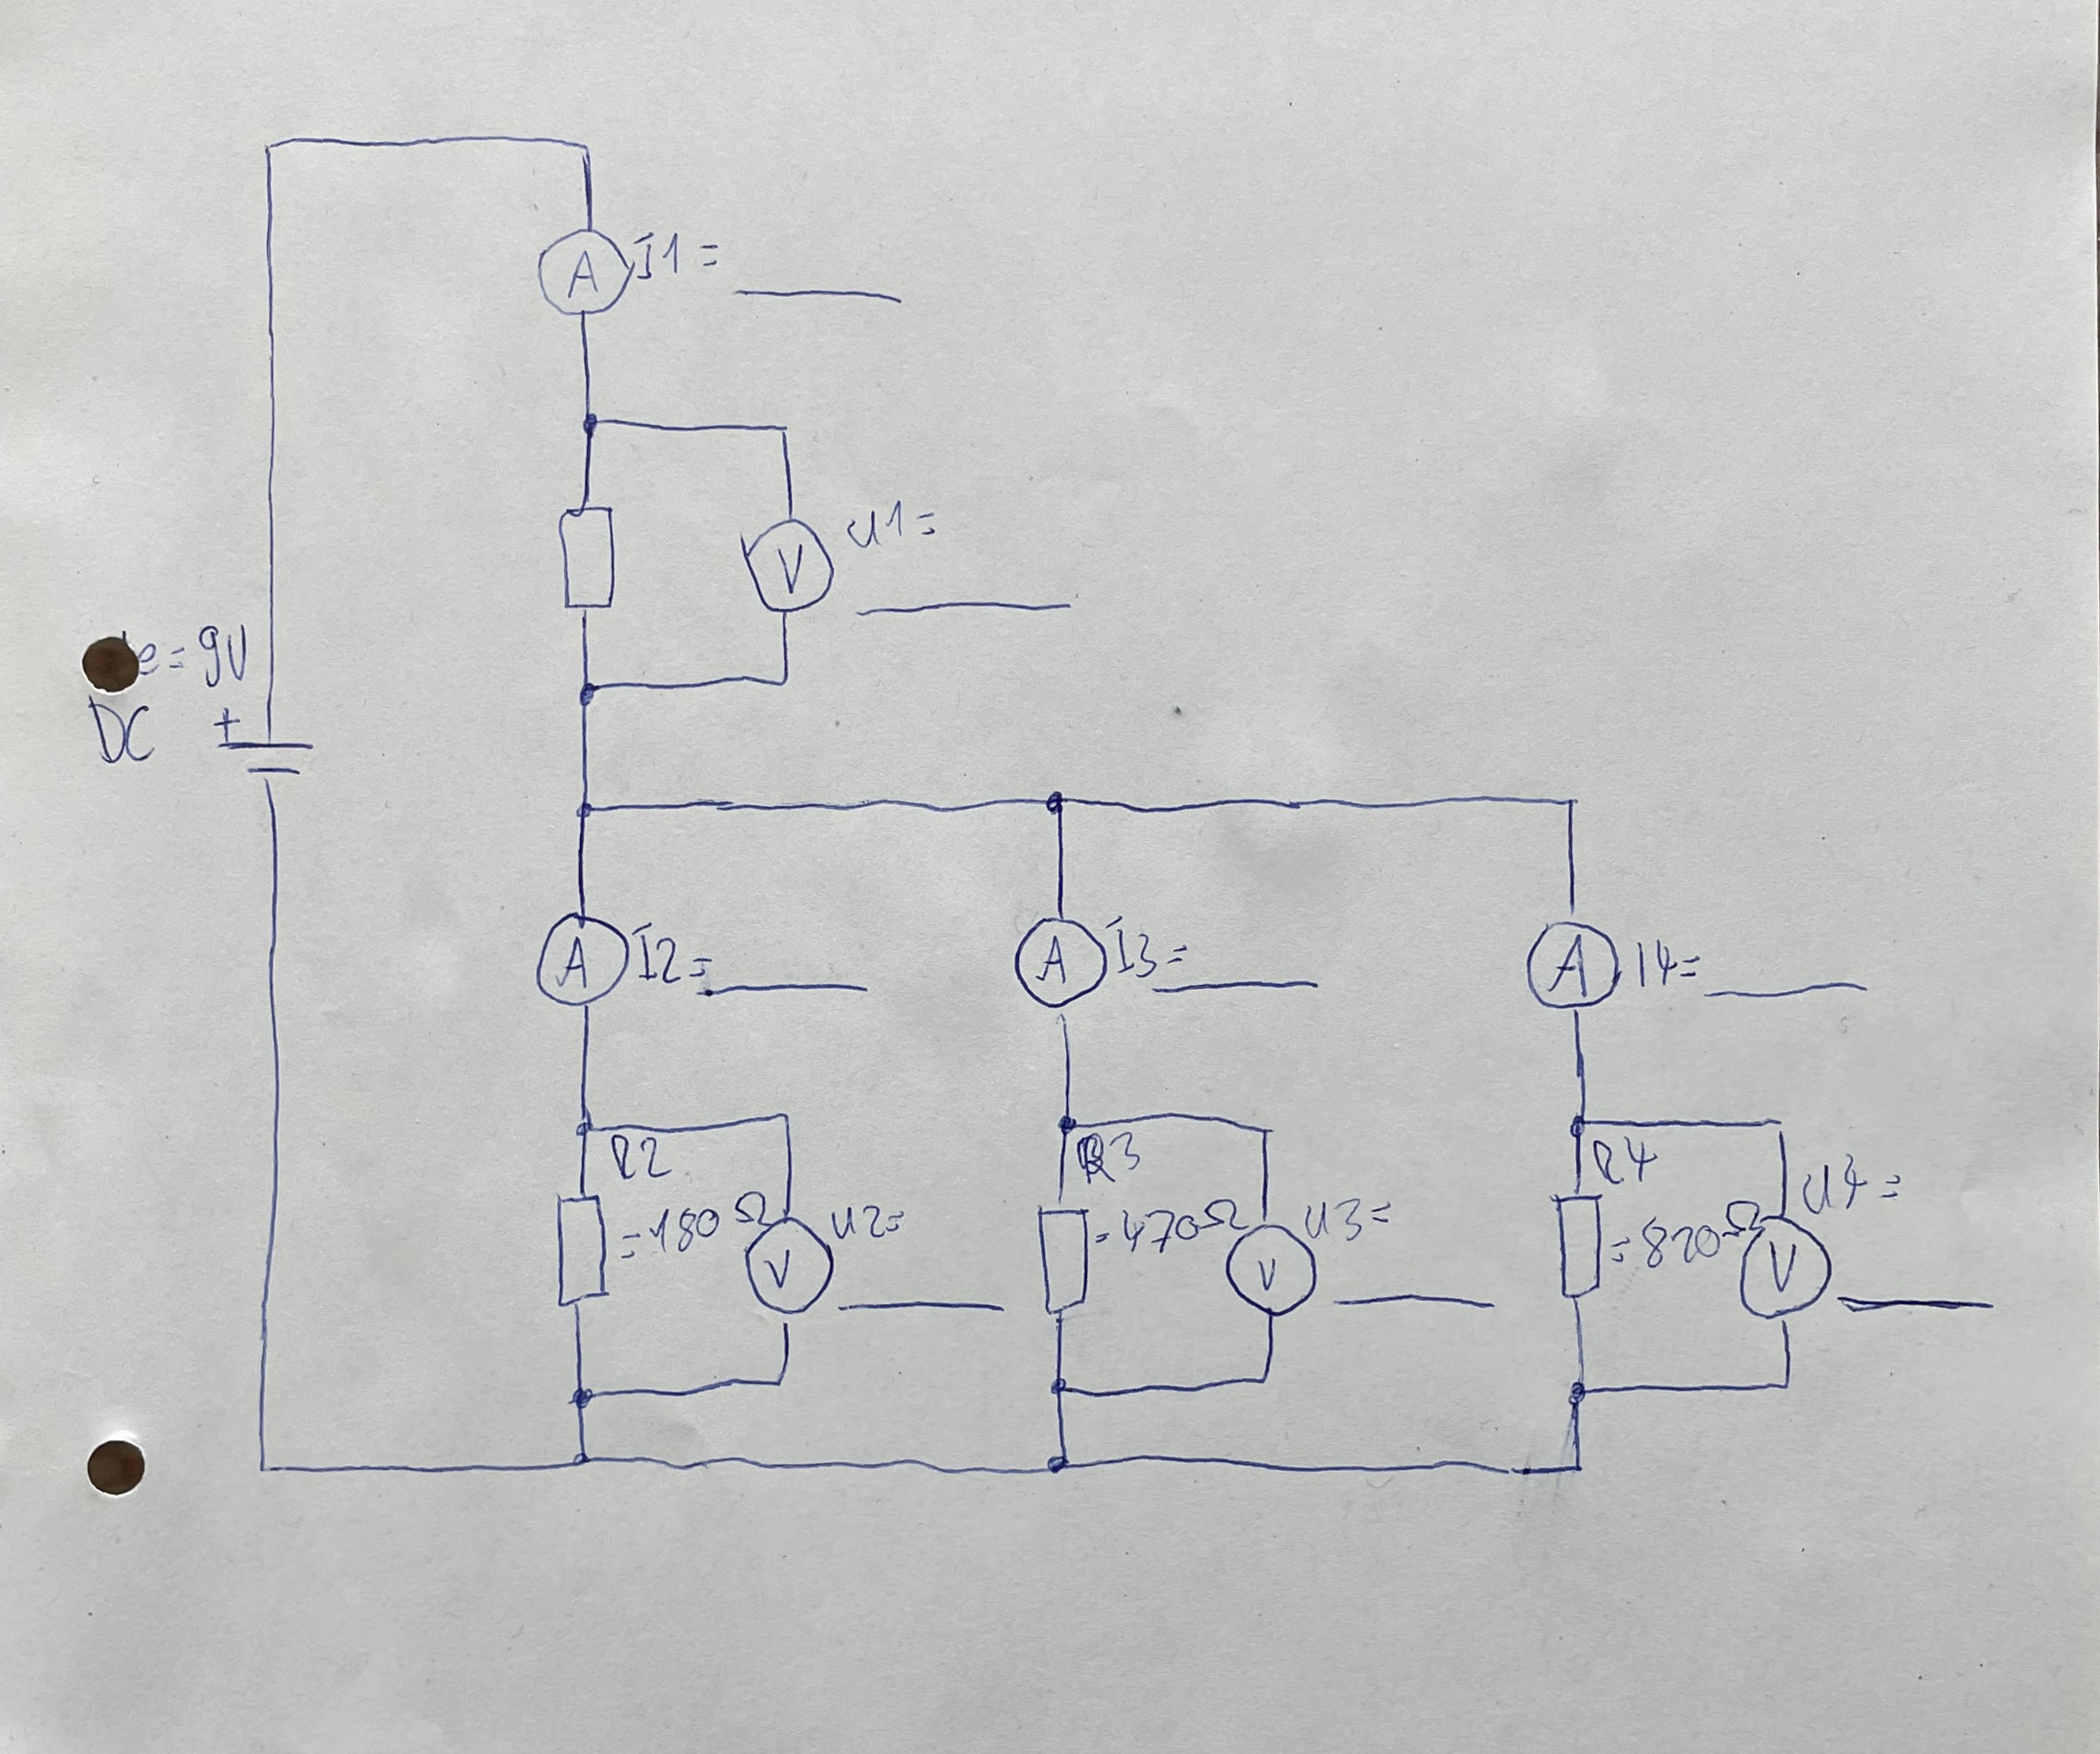 A I1=
V U1=
e=9V
DC +
A I2=
A I3=
A I4=
R2
=180Ω
V U2=
R3
=470Ω
V U3=
R4
=820Ω
V U4=